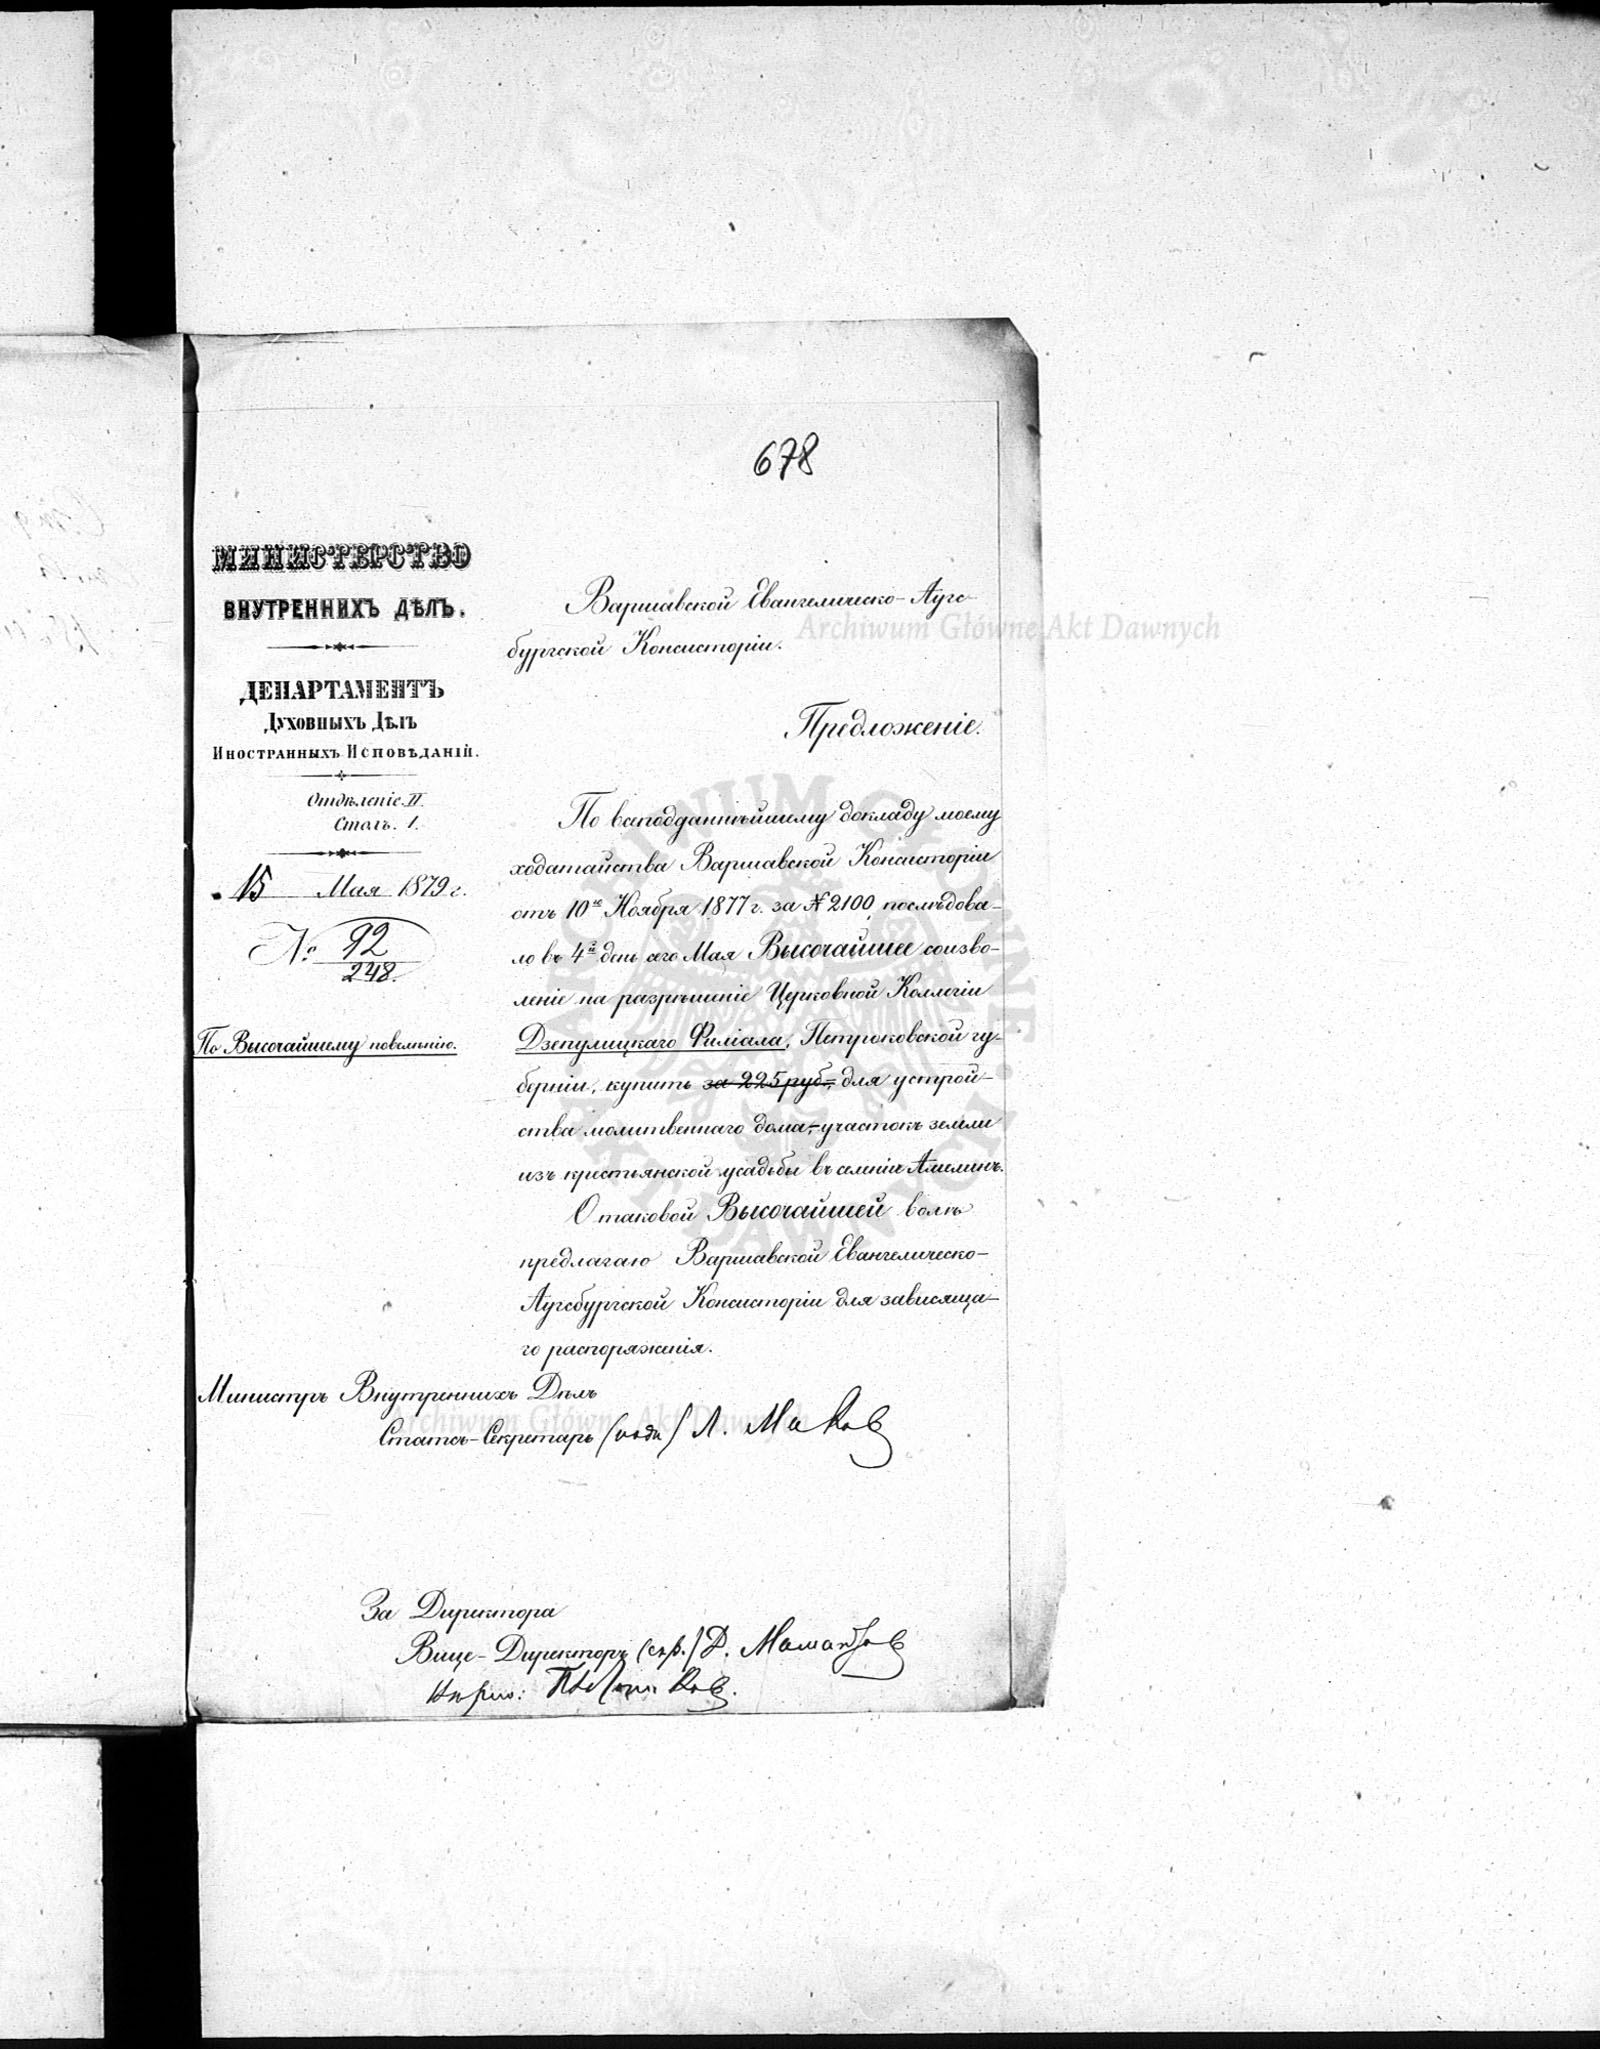 678
МИНИСТЕРСТВО
ВНУТРЕННИХЪ ДѢЛЪ.
ДЕПАРТАМЕНТЪ
ДУХОВНЫХЪ ДѢЛЪ
ИНОСТРАННЫХЪ ИСПОВѢДАНІЙ.
Отдѣленіе II.
Столъ. 1.
15 Мая 1879 г.
№ 92
248.
По Высочайшему повелѣнію.
Варшавской Евангелическо-Аугс-
бургской Консисторіи.
Предложеніе.
По всеподданнѣйшему докладу моему
ходатайства Варшавской Консисторіи
отъ 10го Ноября 1877 г. за № 2100, послѣдова-
ло въ 4й день сего Мая Высочайшее соизво-
леніе на разрѣшеніе Церковной Коллегіи
Дзепулицкаго Филіала, Петроковской гу-
берніи, купить за 225 руб., для устрой-
ства молитвеннаго дома, участокъ земли
изъ крестьянской усадьбы въ селеніи
О таковой Высочайшей волѣ
предлагаю Варшавской Евангелическо-
Аугсбургской Консисторіи для зависяща-
го распоряженія.
Министръ Внутреннихъ Дѣлъ
Статсъ-Секретарь (подп) Л. Маковъ
За Директора
Вице-Директоръ (скр.)
Archiwum Główne Akt Dawnych
Archiwum Główne Akt Dawnych
ARCHIWUM GŁÓWNE AKT DAWNYCH